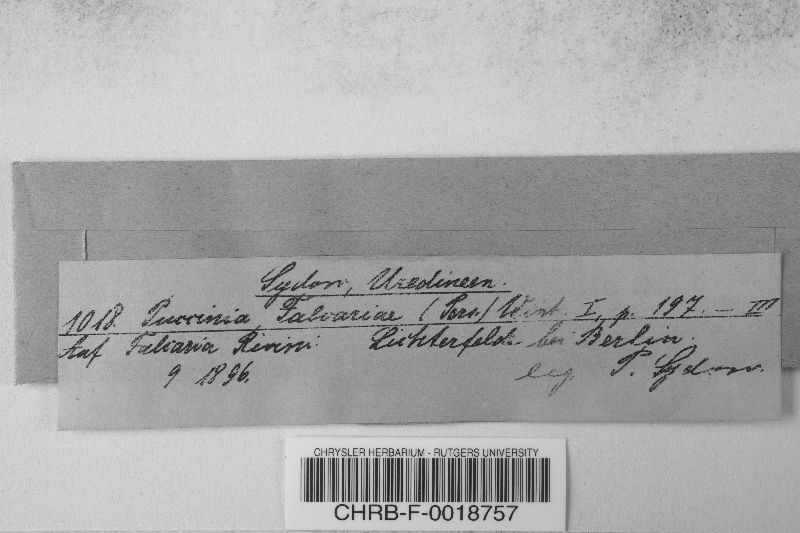 Sydow, Uredineen.
1018. Puccinia Falcariae (Pers.) Wint. I, p. 197. — III
Auf Falcaria Rivini. Lichterfelde bei Berlin.
9 1896. leg. P. Sydow.
CHRYSLER HERBARIUM - RUTGERS UNIVERSITY
CHRB-F-0018757